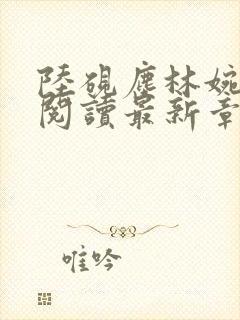 陸硯塵林婉
閱讀最新章
唯吟